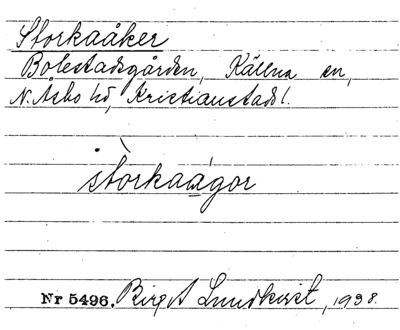 Storkaåker
Bolestadsgården, Källna sn,
N. Åsbo hd, Kristianstads l.
stòrkaágor
Nr 5496. Birgit Lundkvist, 1938.